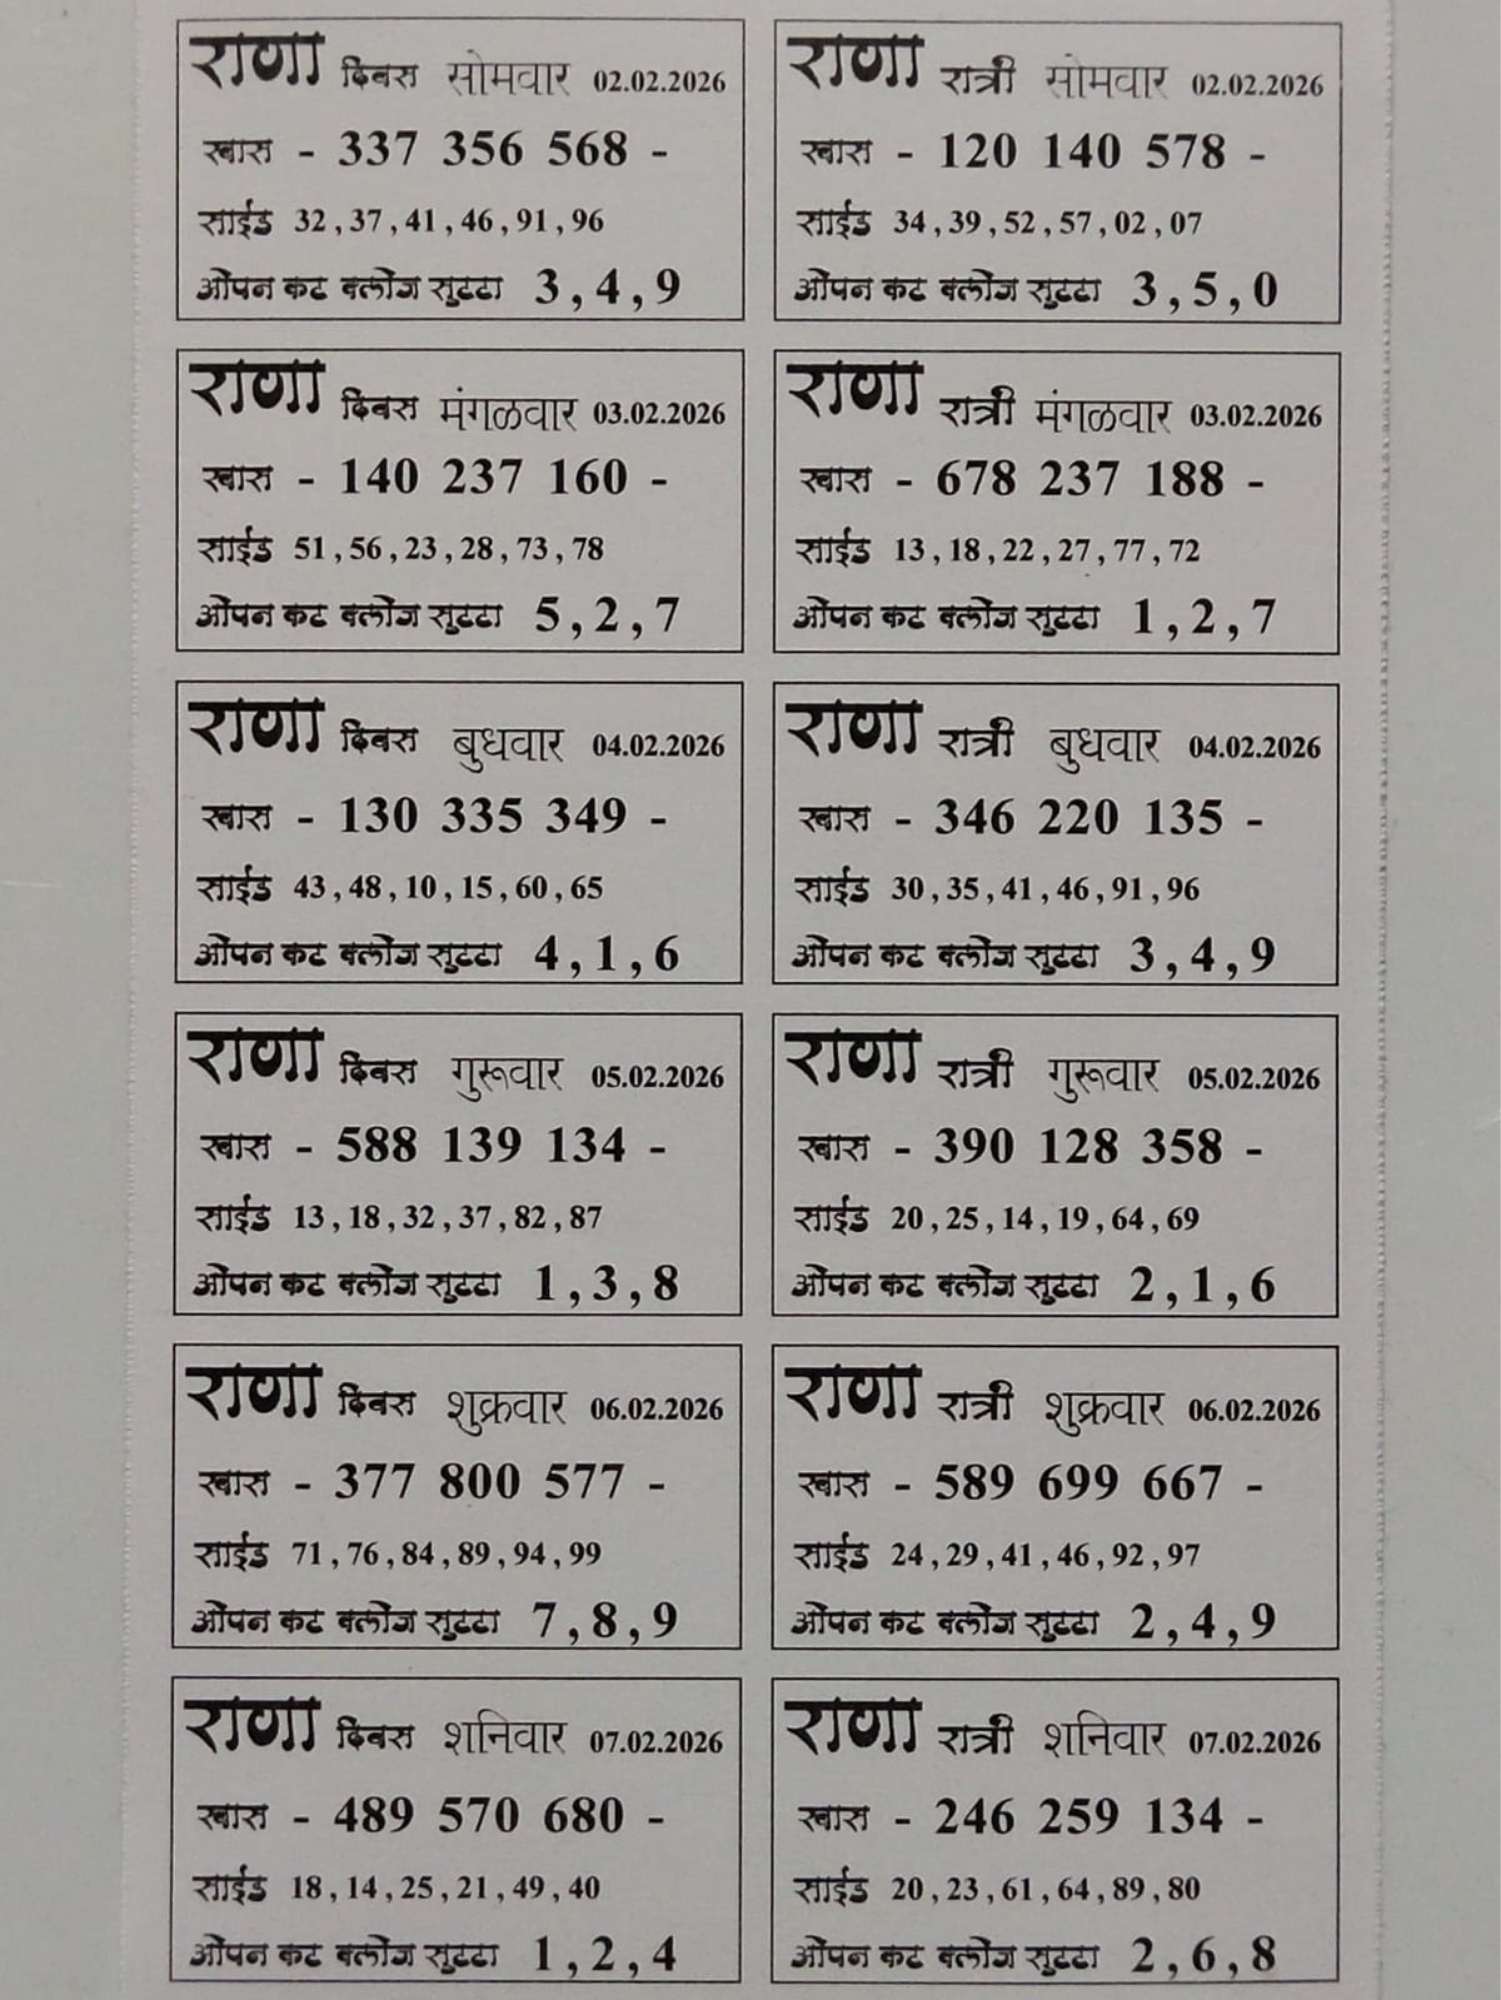 राणा दिवस सोमवार 02.02.2026
खास - 337 356 568 -
साईड 32 , 37 , 41 , 46 , 91 , 96
ओपन कट क्लोज सुटटा 3 , 4 , 9
राणा रात्री सोमवार 02.02.2026
खास - 120 140 578 -
साईड 34 , 39 , 52 , 57 , 02 , 07
ओपन कट क्लोज सुटटा 3 , 5 , 0
राणा दिवस मंगळवार 03.02.2026
खास - 140 237 160 -
साईड 51 , 56 , 23 , 28 , 73 , 78
ओपन कट क्लोज सुटटा 5 , 2 , 7
राणा रात्री मंगळवार 03.02.2026
खास - 678 237 188 -
साईड 13 , 18 , 22 , 27 , 77 , 72
ओपन कट क्लोज सुटटा 1 , 2 , 7
राणा दिवस बुधवार 04.02.2026
खास - 130 335 349 -
साईड 43 , 48 , 10 , 15 , 60 , 65
ओपन कट क्लोज सुटटा 4 , 1 , 6
राणा रात्री बुधवार 04.02.2026
खास - 346 220 135 -
साईड 30 , 35 , 41 , 46 , 91 , 96
ओपन कट क्लोज सुटटा 3 , 4 , 9
राणा दिवस गुरूवार 05.02.2026
खास - 588 139 134 -
साईड 13 , 18 , 32 , 37 , 82 , 87
ओपन कट क्लोज सुटटा 1 , 3 , 8
राणा रात्री गुरूवार 05.02.2026
खास - 390 128 358 -
साईड 20 , 25 , 14 , 19 , 64 , 69
ओपन कट क्लोज सुटटा 2 , 1 , 6
राणा दिवस शुक्रवार 06.02.2026
खास - 377 800 577 -
साईड 71 , 76 , 84 , 89 , 94 , 99
ओपन कट क्लोज सुटटा 7 , 8 , 9
राणा रात्री शुक्रवार 06.02.2026
खास - 589 699 667 -
साईड 24 , 29 , 41 , 46 , 92 , 97
ओपन कट क्लोज सुटटा 2 , 4 , 9
राणा दिवस शनिवार 07.02.2026
खास - 489 570 680 -
साईड 18 , 14 , 25 , 21 , 49 , 40
ओपन कट क्लोज सुटटा 1 , 2 , 4
राणा रात्री शनिवार 07.02.2026
खास - 246 259 134 -
साईड 20 , 23 , 61 , 64 , 89 , 80
ओपन कट क्लोज सुटटा 2 , 6 , 8